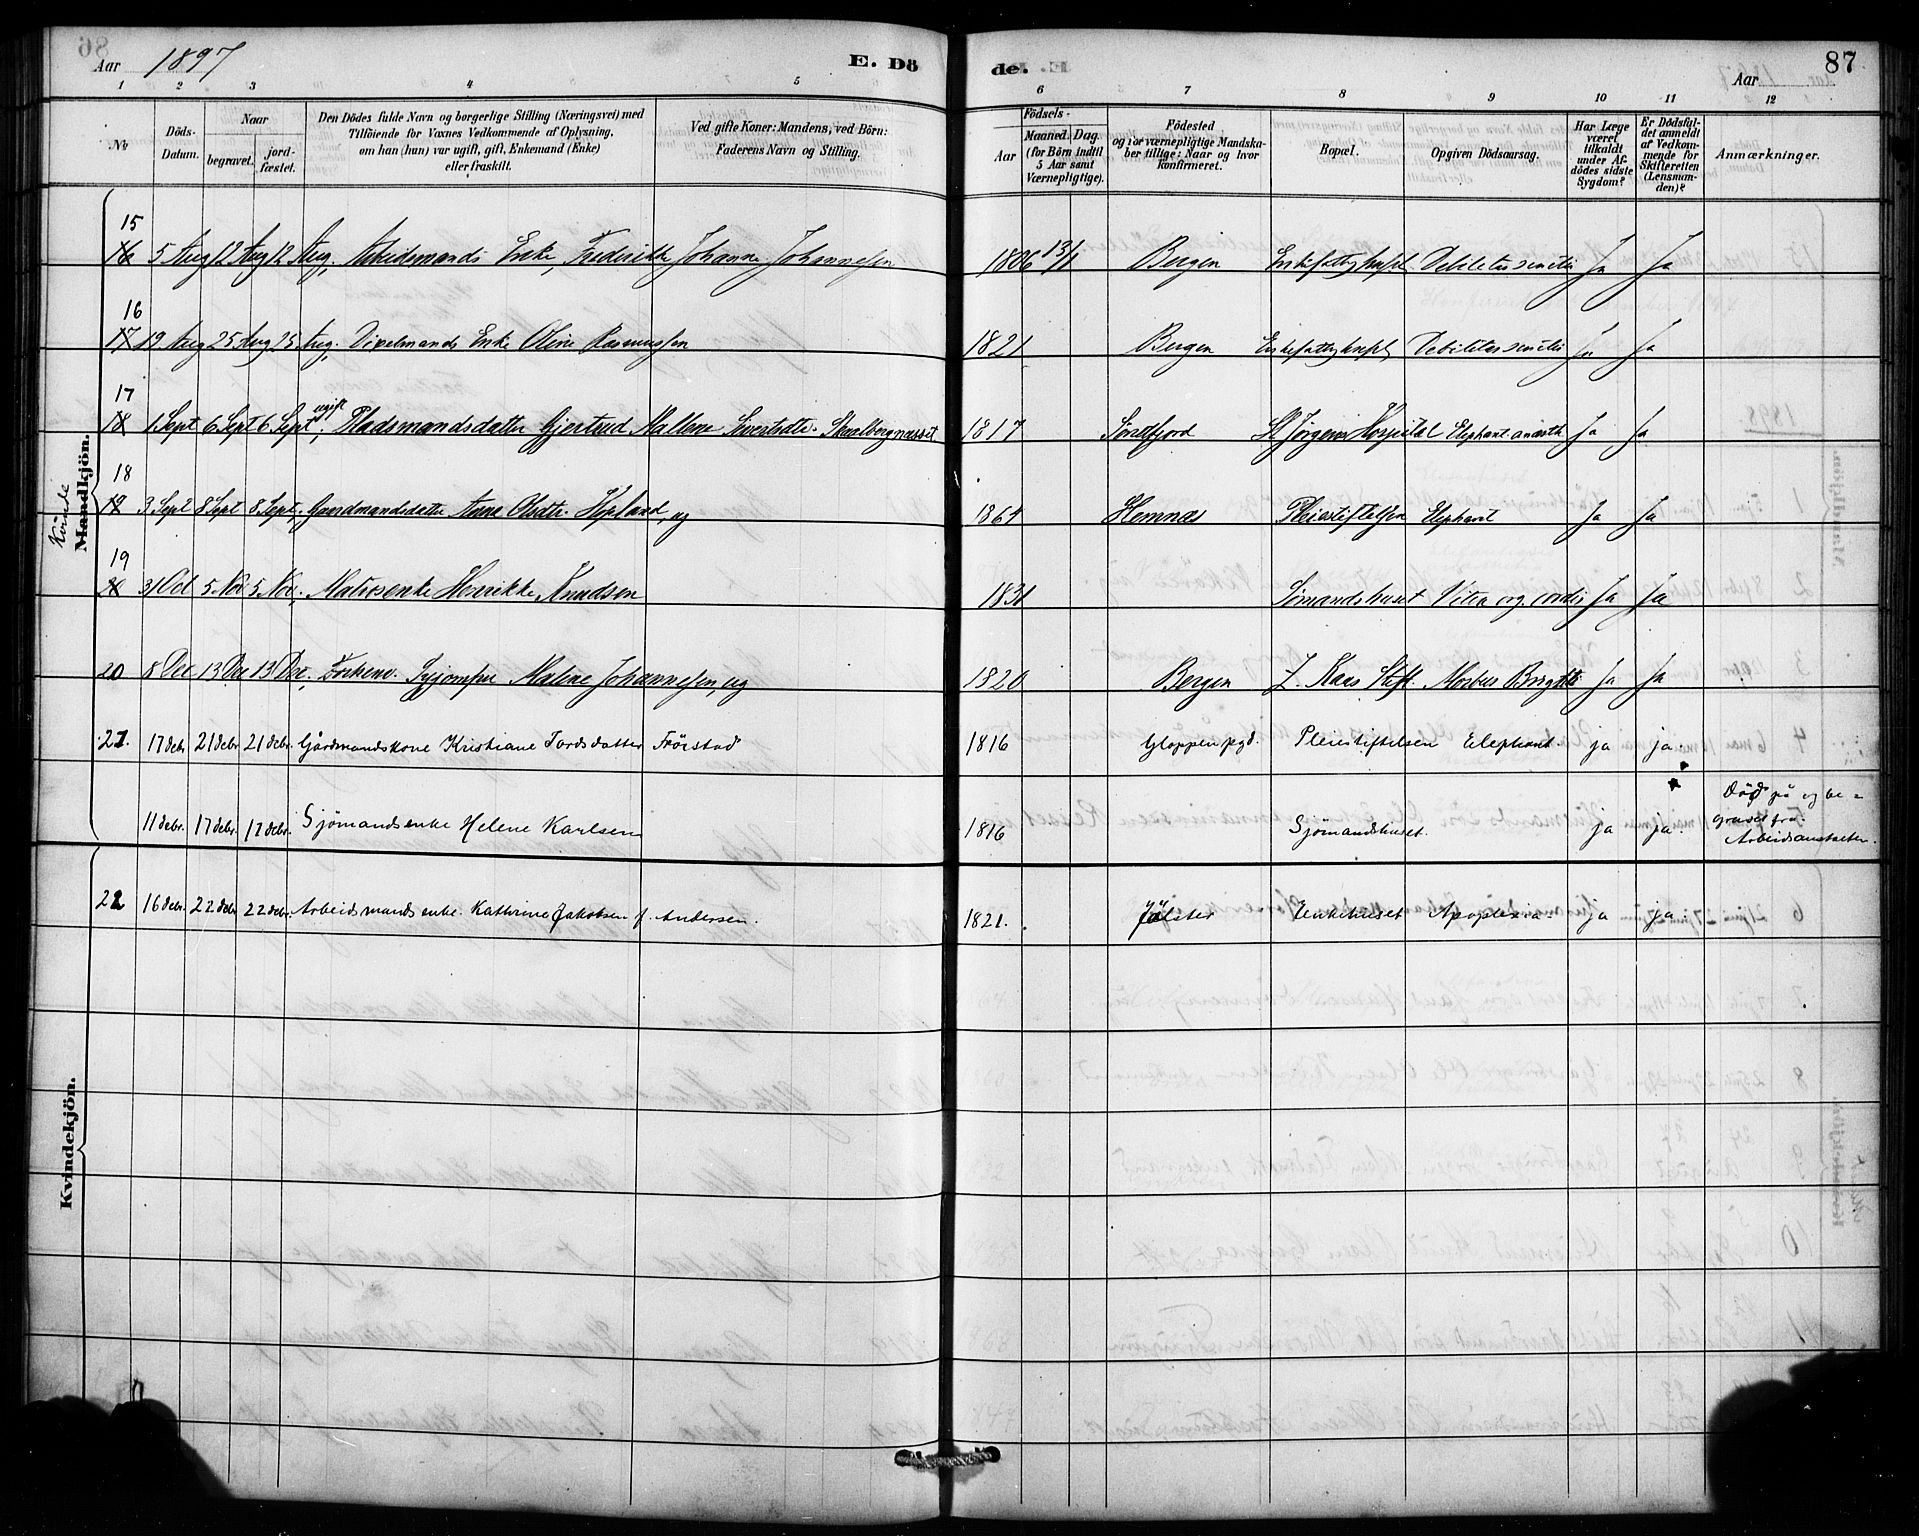 Aar 1897
E. Dö
de.
Aar
87
1 2 3 4 5 6 7 8 9 10 11 12
No
Döds-Datum.
Naar
begravet.
jord-fæstet.
Den Dödes fulde Navn og borgerlige Stilling (Næringsvei) med
Tilföiende for Voxnes Vedkommende af Oplysning,
om han (hun) var ugift, gift, Enkemand (Enke)
eller fraskilt.
Ved gifte Koner: Mandens, ved Börn:
Faderens Navn og Stilling.
Födsels-
Aar
Maaned. Dag.
(for Börn indtil
5 Aar samt
Værnepligtige).
Födested
og for værnepligtige Mandska-
ber tillige: Naar og hvor
konfirmeret.
Bopæl.
Opgiven Dödsaarsag.
Har Læge
været
tilkaldt
under Af-
dödes sidste
Sygdom?
Er Dödsful-
det anmeldt
af Vedkom-
mende for
Skifteretten
(Lensman-
den)?
Anmærkninger.
Kvinde
Mandkjön.
15
16 5 Aug 12 Aug 12 Aug, Arbeidsmands Enke, Frederikke Johanne Johannesen 1806 13/1 Bergen Enkefattighuset Debilitas senilis Ja Ja
16
17 19 Aug 25 Aug 25 Aug. Enke Oline Rasmussen 1821 Bergen Enkefattighuset Debilitas senilis Ja Ja
17
18 1 Sept 6 Sept 6 Sept, ugift Pladsmandsdatter Gjertrud Mallene Sivertsdtr. 1817 St Jörgens Hospital Elephant. anæsth Ja Ja
18
19 3 Sept 8 Sept 8 Sept, Gaardmandsdatter Anne Olsdtr. Hopland, ug 1864 Hemnæs Pleiestiftelsen Elephant Ja Ja
19
20 31 Oct 5 Nov 5 Nov, Matrosenke Henrikke Knudsen 1831 Sömandshuset Vitia org. cordis Ja Ja
20 8 Dec 13 Dec 13 Dec, Forhenv. Syjomfru Maline Johannesen, ug 1820 Bergen Z. Kaas Stift. Morbus Brigthii Ja Ja
21. 17 debr 21 debr 21 debr Gårdmandskone Kristiane Tordsdatter Frörstad 1816 Gloppen pgd. Pleiestiftelsen Elephant. ja ja.
11 debr. 17 debr. 17 debr. Sjömandsenke Helene Karlsen 1816 Sjömandshuset. ja ja. Död på og be-
gravet fra
Arbeidsanstalten.
22 16 debr. 22 debr. 22 debr. Arbeidsmandsenke. Kathrine Jakobsen f. Andersen. 1821. Jölster Enkehuset Apoplexia. ja ja.
Kvindekjön.